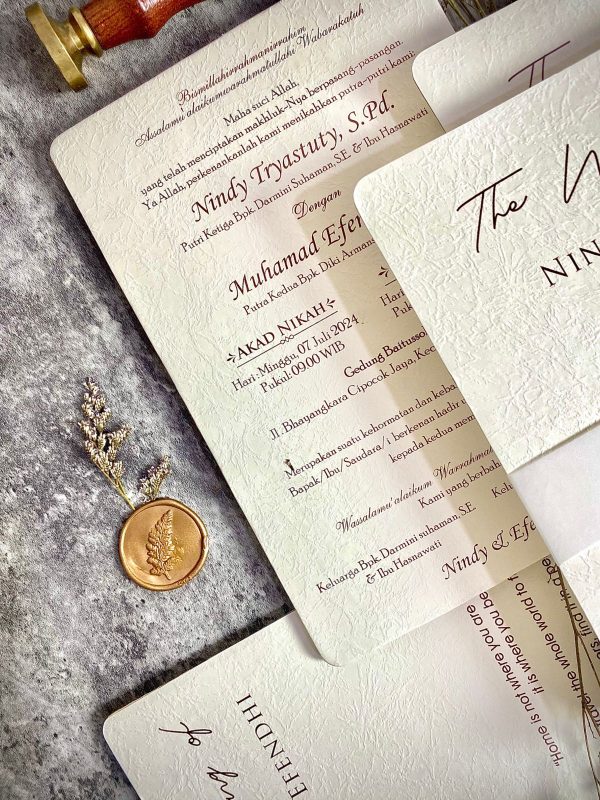 Bismillahirrahmanirrahim
Assalamu'alaikumwarahmatullahi Wabarakatuh
Maha suci Allah,
yang telah menciptakan makhluk-Nya berpasang-pasangan.
Ya Allah, perkenankanlah kami menikahkan putra-putri kami:
Nindy Tryastuty, S.Pd.
Putri Ketiga Bpk. Darmini Suhaman, S.E. & Ibu Hasnawati
Dengan
Muhamad Efen
Putra Kedua Bpk. Diki Armans
AKAD NIKAH
Hari : Minggu, 07 Juli 2024
Pukul: 09.00 WIB
Hari
Puk
Gedung Baitusso
Jl. Bhayangkara Cipocok Jaya, Kec
Merupakan suatu kehormatan dan keba
Bapak/Ibu/Saudara/i berkenan hadir
kepada kedua mem
Wassalamu'alaikum Warrahma
Kami yang berbah
Keluarga Bpk. Darmini suhaman, S.E.
& Ibu Hasnawati
Kel
Nindy & Efe
The
NIN
EFENDHI
ng of
"Home is not where you are
It is where you be
travel the whole world to f